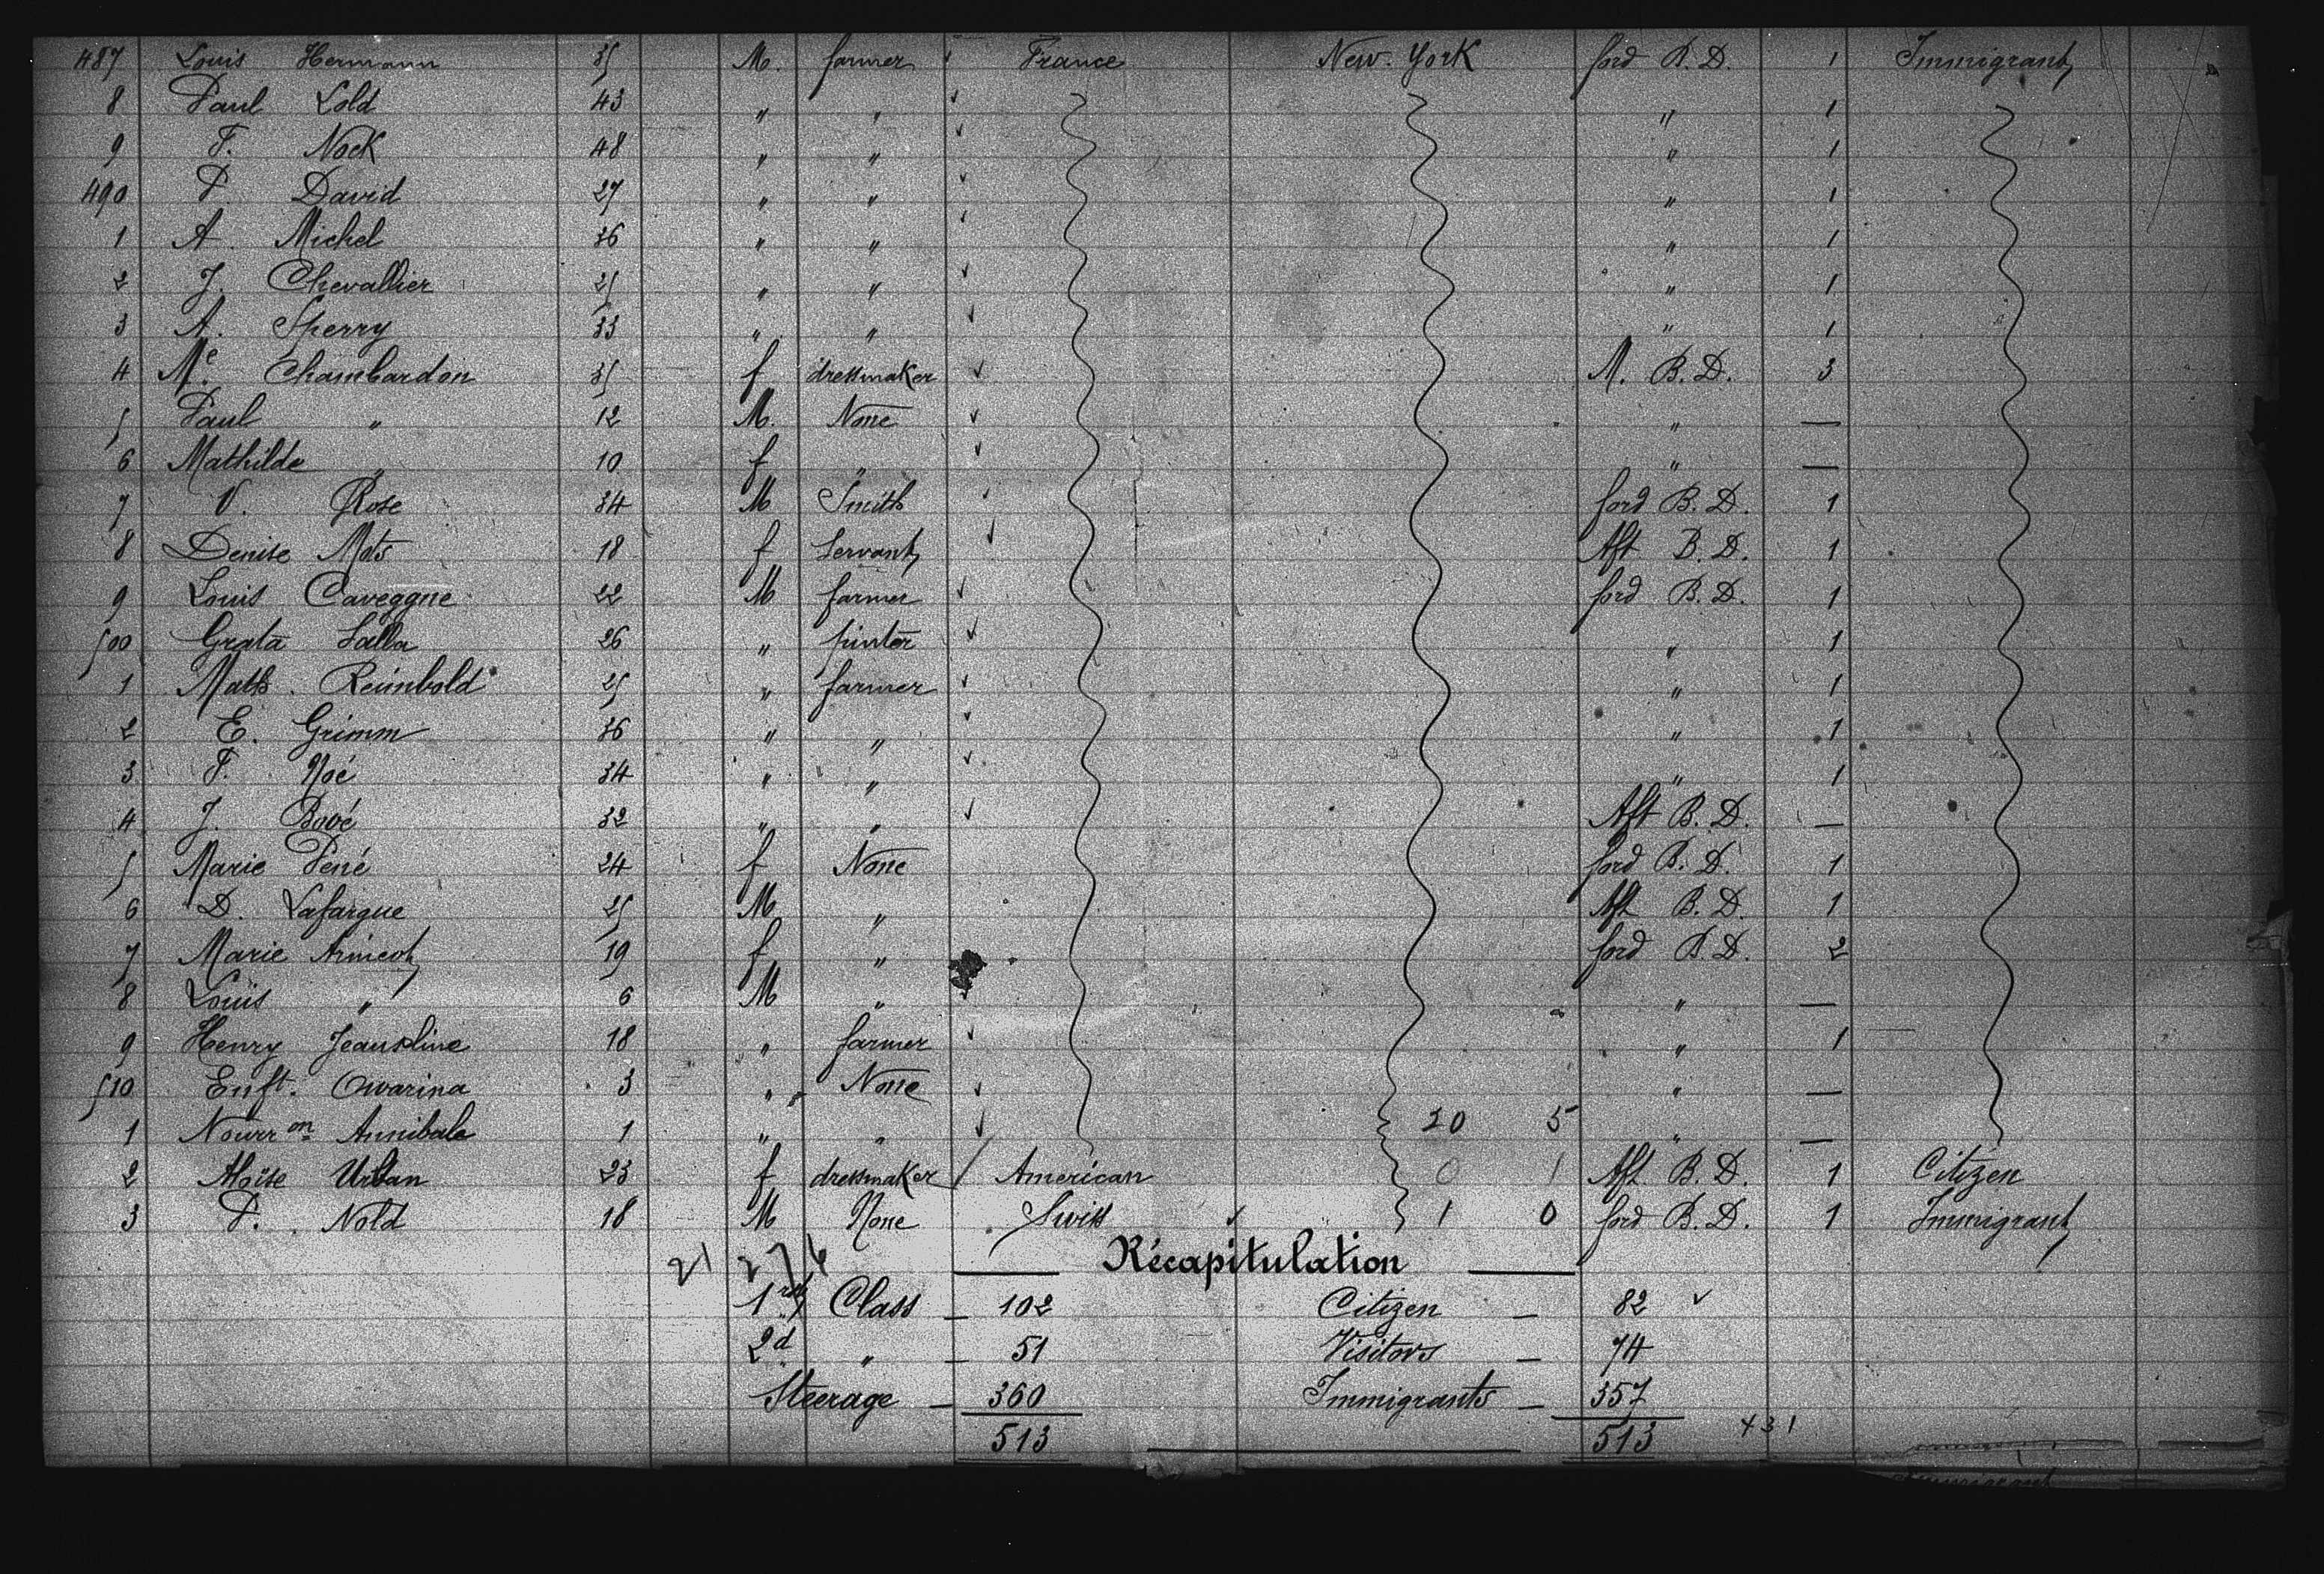 487 Louis Hermann 35 M. farmer France New-York ford B.D. 1 Immigrant
8 Paul Lold 43 " " " 1
9 F. Nock 48 " " " 1
490 P. David 27 " " " 1
1 A. Michel 36 " " " 1
2 J. Chevallier 25 " " " 1
3 A. Sperry 33 " " " 1
4 Me. Chambardon 35 f dressmaker M. B.D. 3
5 Paul " 12 M. None " —
6 Mathilde " 10 f " " —
7 V. Rose 34 M Smith ford B.D. 1
8 Denise Mots 18 f Servant Aft B.D. 1
9 Louis Caveggne 22 M farmer ford B.D. 1
500 Grata Salla 26 " " 1
1 Math. Reimbold 25 " farmer " 1
2 E. Grimm 36 " " " 1
3 F. Noé 34 " " " 1
4 J. Bové 32 " " Aft B.D. —
5 Marie Pené 24 f None ford B.D. 1
6 D. Lafargue 25 M " Aft B.D. 1
7 Marie 19 f " ford B.D. 2
8 Louis " 6 M " " —
9 Henry 18 " farmer " 1
510 Enft. Owarina 3 " None " —
1 Nourr on Annibale 1 " " 20 5 " —
2 Aloïse Urban 23 f dressmaker / American 0 1 Aft B.D. 1 Citizen
3 P. Nold 18 M None Swiss 1 0 ford B.D. 1 Immigrant
21 276
Récapitulation
1rst Class — 102 Citizen — 82
2d " — 51 Visitors — 74
Steerage — 360 Immigrants — 357
513 513 431